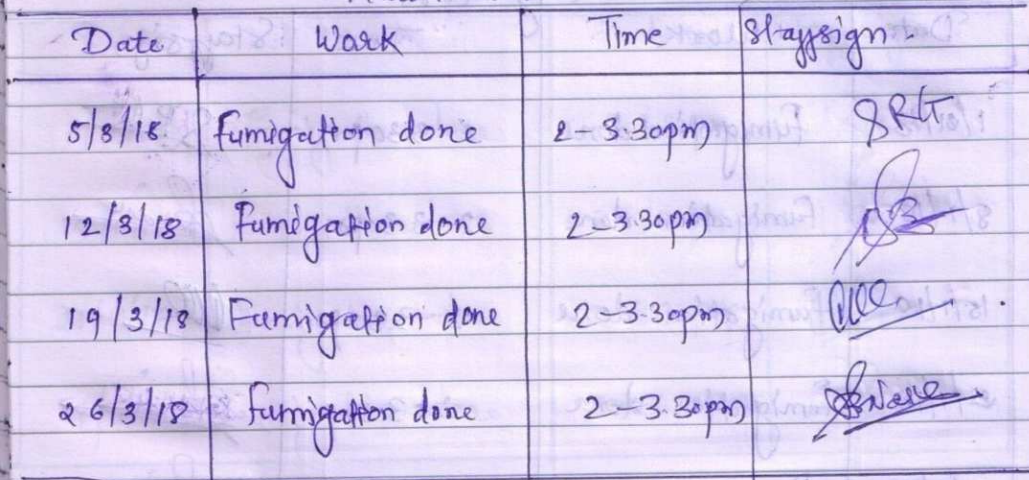 Date Work Time Staff sign
5/3/18 Fumigation done 2-3.30pm
12/3/18 Fumigation done 2-3.30pm
19/3/18 Fumigation done 2-3.30pm
26/3/18 Fumigation done 2-3.30pm